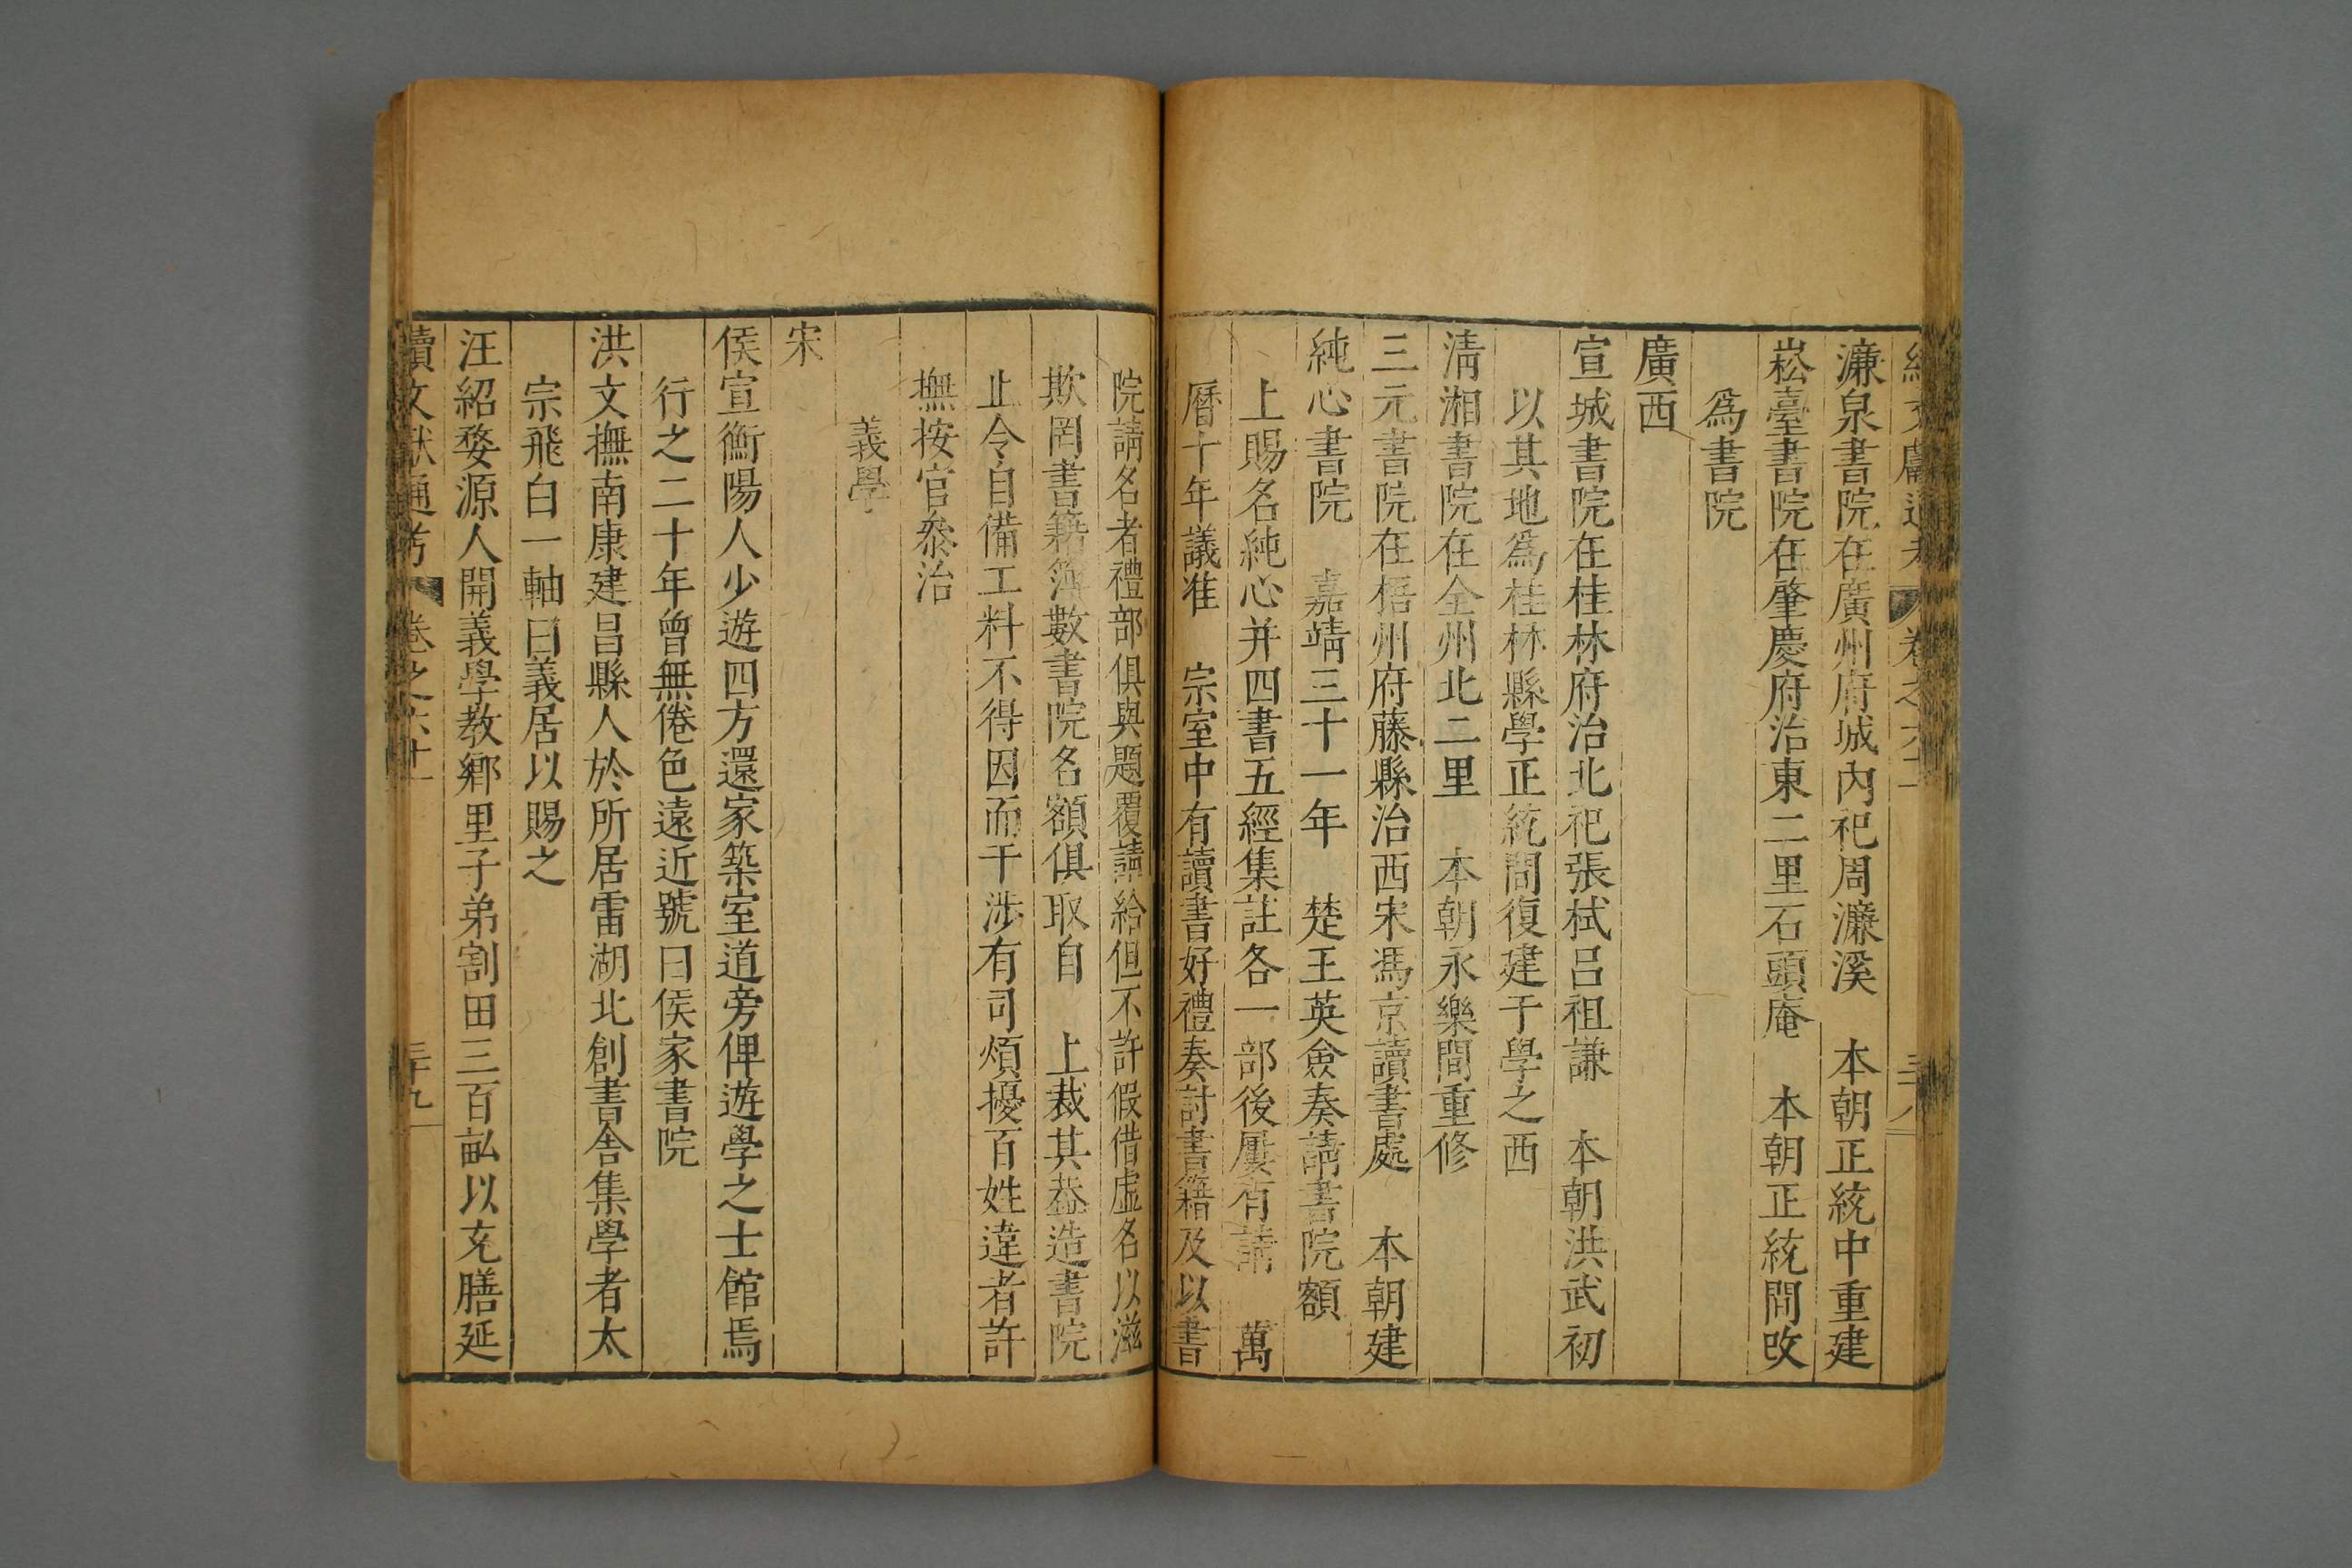 續文獻通考 卷之六十一 三十八
濂泉書院在廣州府城內祀周濂溪 本朝正統中重建
崧臺書院在肇慶府治東二里石頭庵 本朝正統間改
爲書院
廣西
宣城書院在桂林府治北祀張栻呂祖謙 本朝洪武初
以其地爲桂林縣學正統間復建于學之西
淸湘書院在全州北二里 本朝永樂間重修
三元書院在梧州府藤縣治西宋馮京讀書處 本朝建
純心書院 嘉靖三十一年 楚王英㷿奏請書院額
上賜名純心并四書五經集註各一部後屢有請 萬
曆十年議准 宗室中有讀書好禮奏討書籍及以書
院請名者禮部俱與題覆請給但不許假借虛名以滋
欺罔書籍簿數書院名額俱取自 上裁其葢造書院
止令自備工料不得因而干涉有司煩擾百姓違者許
撫按官叅治
義學
宋
侯宣衡陽人少遊四方還家築室道旁俾遊學之士館焉
行之二十年曾無倦色遠近號曰侯家書院
洪文撫南康建昌縣人於所居雷湖北創書舍集學者太
宗飛白一軸曰義居以賜之
汪紹婺源人開義學教鄉里子弟割田三百畝以充膳延
續文獻通考 卷之六十一 三十九